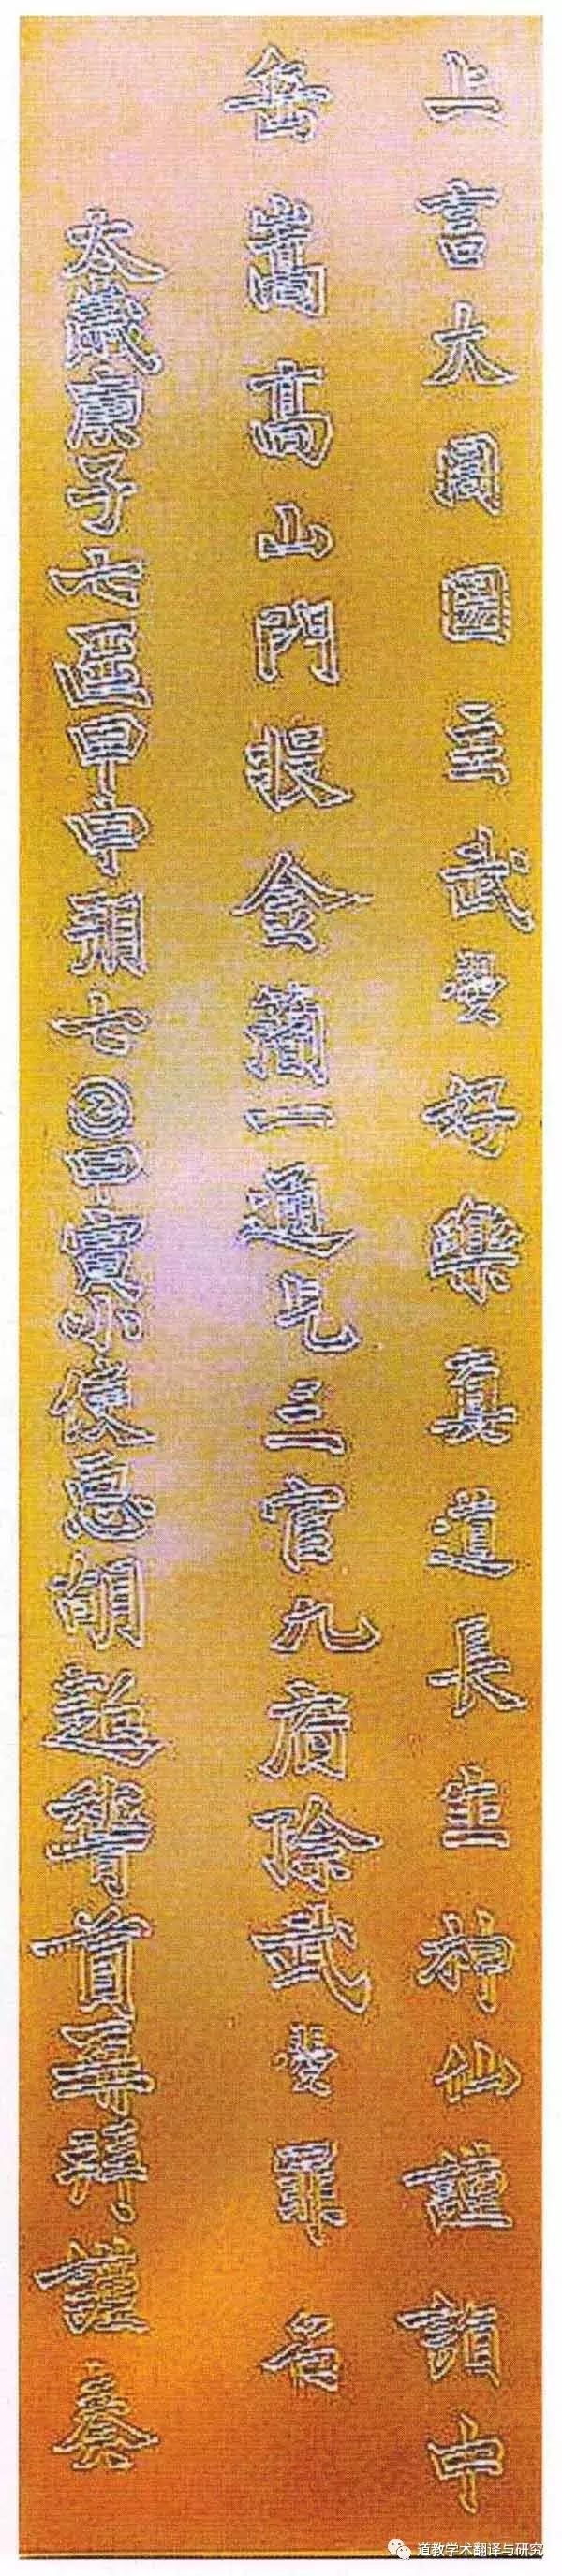 上言大周圀主武曌好樂真道長生神仙謹詣中
岳嵩高山門投金簡一通乞三官九府除武曌罪名
太歲庚子七𠥱甲申朔七𡆠甲寅小使𢘑胡超稽首再拜謹奏
道教学术翻译与研究